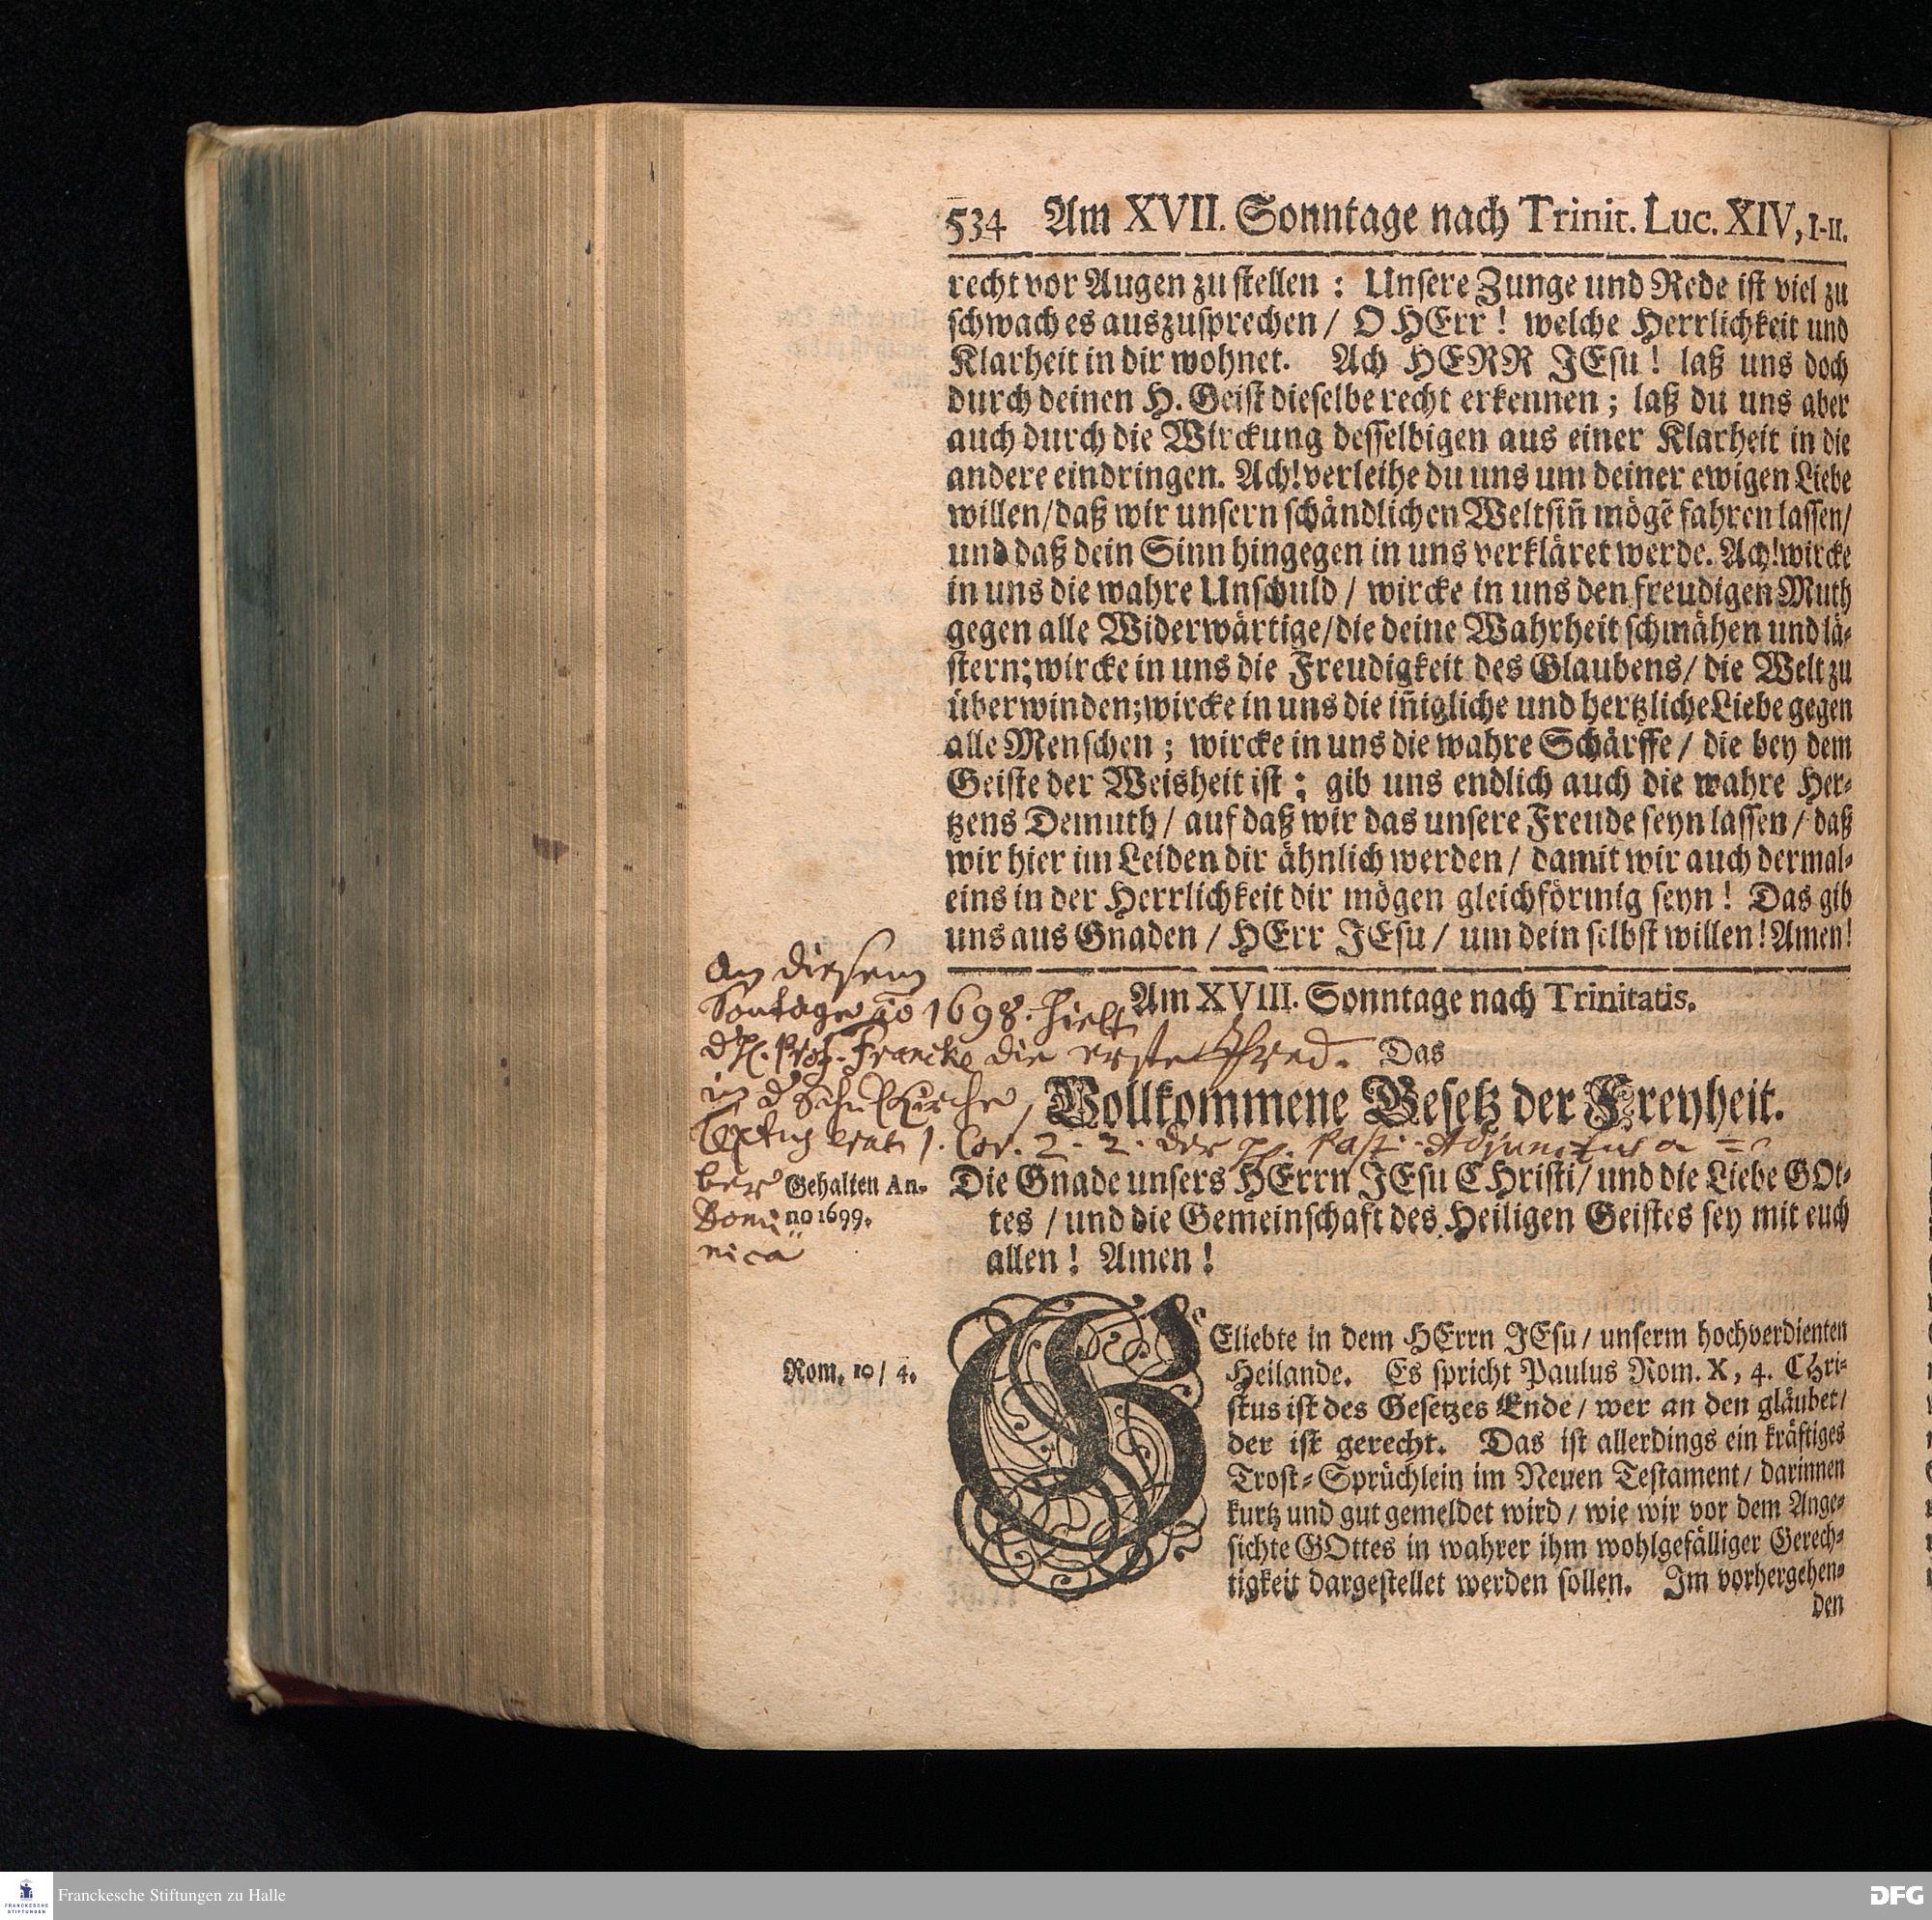 534 Am XVII. Sonntage nach Trinit. Luc. XIV, I-II.
recht vor Augen zu stellen : Unsere Zunge und Rede ist viel zu
schwach es auszusprechen / O HErr ! welche Herrlichkeit und
Klarheit in dir wohnet. Ach HERR JEsu ! laß uns doch
durch deinen H. Geist dieselbe recht erkennen ; laß du uns aber
auch durch die Wirckung desselbigen aus einer Klarheit in die
andere eindringen. Ach! verleihe du uns um deiner ewigen Liebe
willen / daß wir unsern schändlichen Weltsiñ mögẽ fahren lassen /
und daß dein Sinn hingegen in uns verkläret werde. Ach! wircke
in uns die wahre Unschuld / wircke in uns den freudigen Muth
gegen alle Widerwärtige / die deine Wahrheit schmähen und lä-
stern; wircke in uns die Freudigkeit des Glaubens / die Welt zu
überwinden; wircke in uns die iñigliche und hertzliche Liebe gegen
alle Menschen ; wircke in uns die wahre Schärffe / die bey dem
Geiste der Weisheit ist ; gib uns endlich auch die wahre Her-
tzens Demuth / auf daß wir das unsere Freude seyn lassen / daß
wir hier im Leiden dir ähnlich werden / damit wir auch dermal-
eins in der Herrlichkeit dir mögen gleichförmig seyn ! Das gib
uns aus Gnaden / HErr JEsu / um dein selbst willen ! Amen !
An diesem
Sontage ao 1698. hielt
Am XVIII. Sonntage nach Trinitatis.
H. Prof. Francke die erste Pred.
Das
in d Schulkirche,
Vollkommene Gesetz der Freyheit.
Textus erat 1. Cor. 2. 2. der Past. Adjunctus a
ber
Domi
nica
Gehalten An-
no 1699.
Die Gnade unsers HErrn JEsu CHristi / und die Liebe GOt-
tes / und die Gemeinschaft des Heiligen Geistes sey mit euch
allen ! Amen !
Rom. 10 / 4.
GEliebte in dem HErrn JEsu / unserm hochverdienten
Heilande. Es spricht Paulus Rom. X, 4. Chri-
stus ist des Gesetzes Ende / wer an den gläubet /
der ist gerecht. Das ist allerdings ein kräftiges
Trost-Sprüchlein im Neuen Testament / darinnen
kurtz und gut gemeldet wird / wie wir vor dem Ange-
sichte GOttes in wahrer ihm wohlgefälliger Gerech-
tigkeit dargestellet werden sollen. Im vorhergehen-
den
FRANCKESCHE STIFTUNGEN
Franckesche Stiftungen zu Halle
DFG